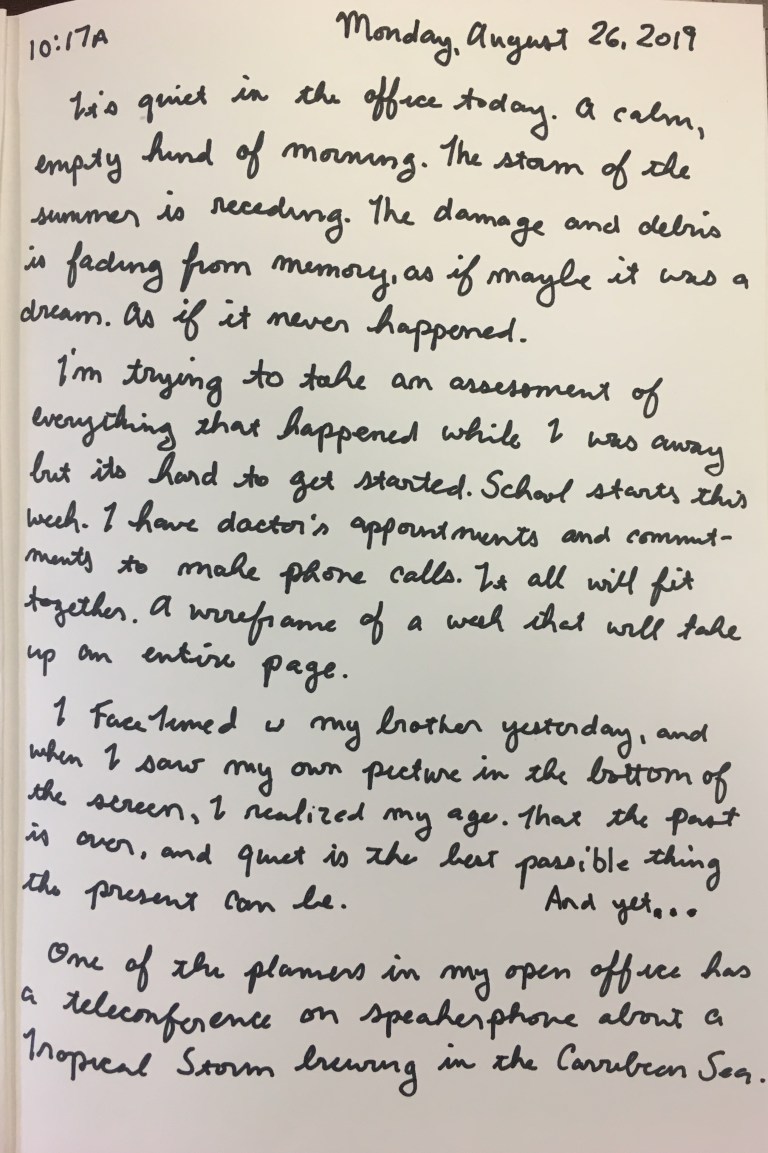 10:17A
Monday, August 26, 2019
It's quiet in the office today. A calm,
empty kind of morning. The storm of the
summer is receding. The damage and debris
is fading from memory, as if maybe it was a
dream. As if it never happened.
I'm trying to take an assessment of
everything that happened while I was away
but its hard to get started. School starts this
week. I have doctor's appointments and commit-
ments to make phone calls. It all will fit
together. A wireframe of a week that will take
up an entire page.
I FaceTimed w my brother yesterday, and
when I saw my own picture in the bottom of
the screen, I realized my age. That the past
is over, and quiet is the best possible thing
the present can be. And yet...
One of the planners in my open office has
a teleconference on speakerphone about a
Tropical Storm brewing in the Carribean Sea.